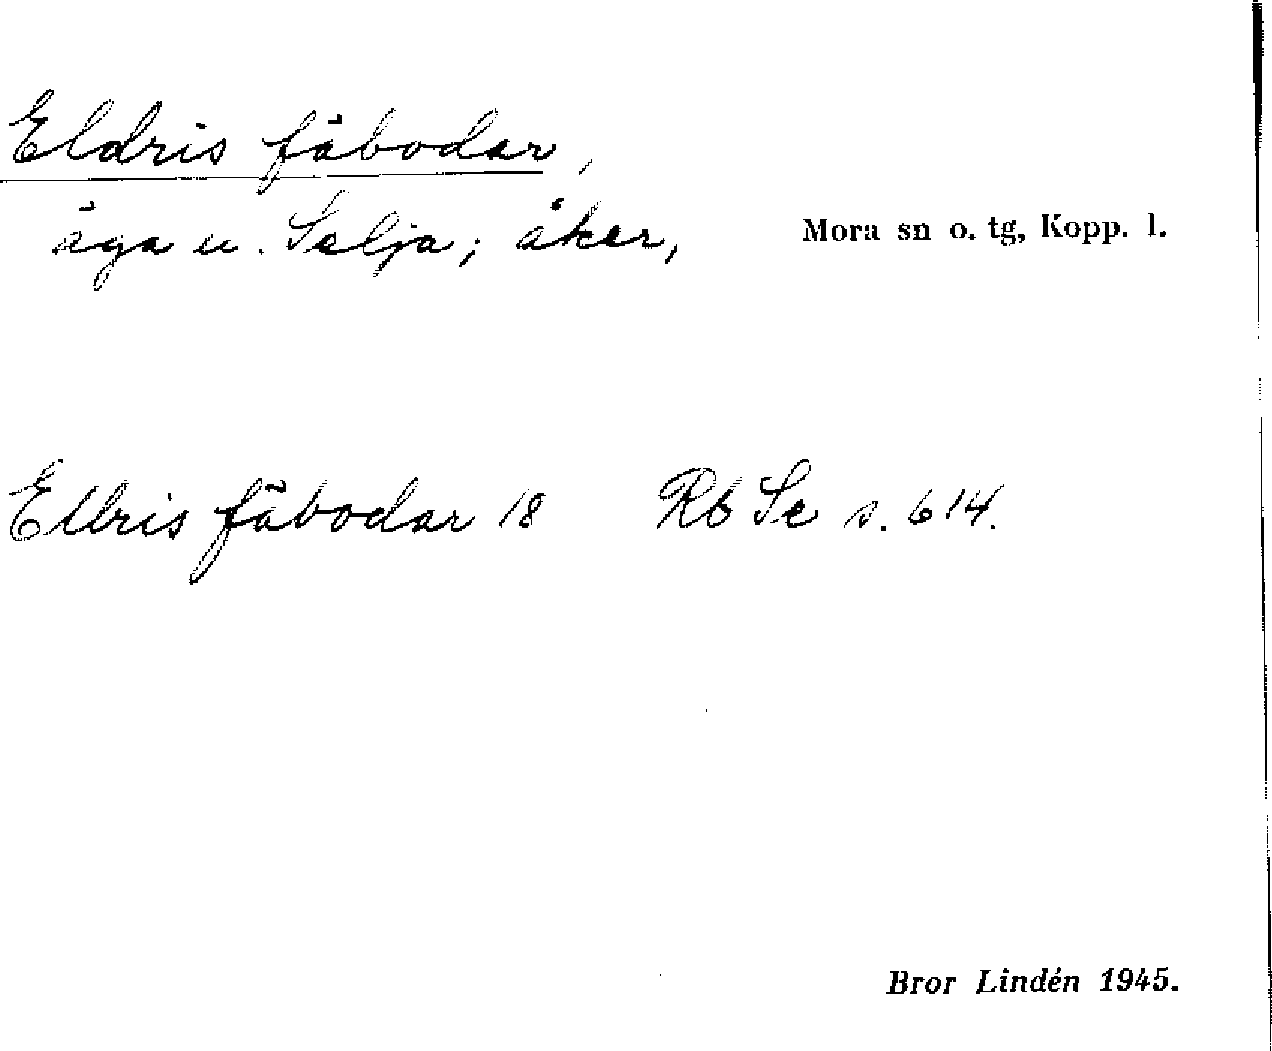 Eldris fäbodar,
äga u. Selja; åker,
Mora sn o. tg, Kopp. l.
Ellris fäbodar 18 Rb Se s. 614.
Bror Lindén 1945.